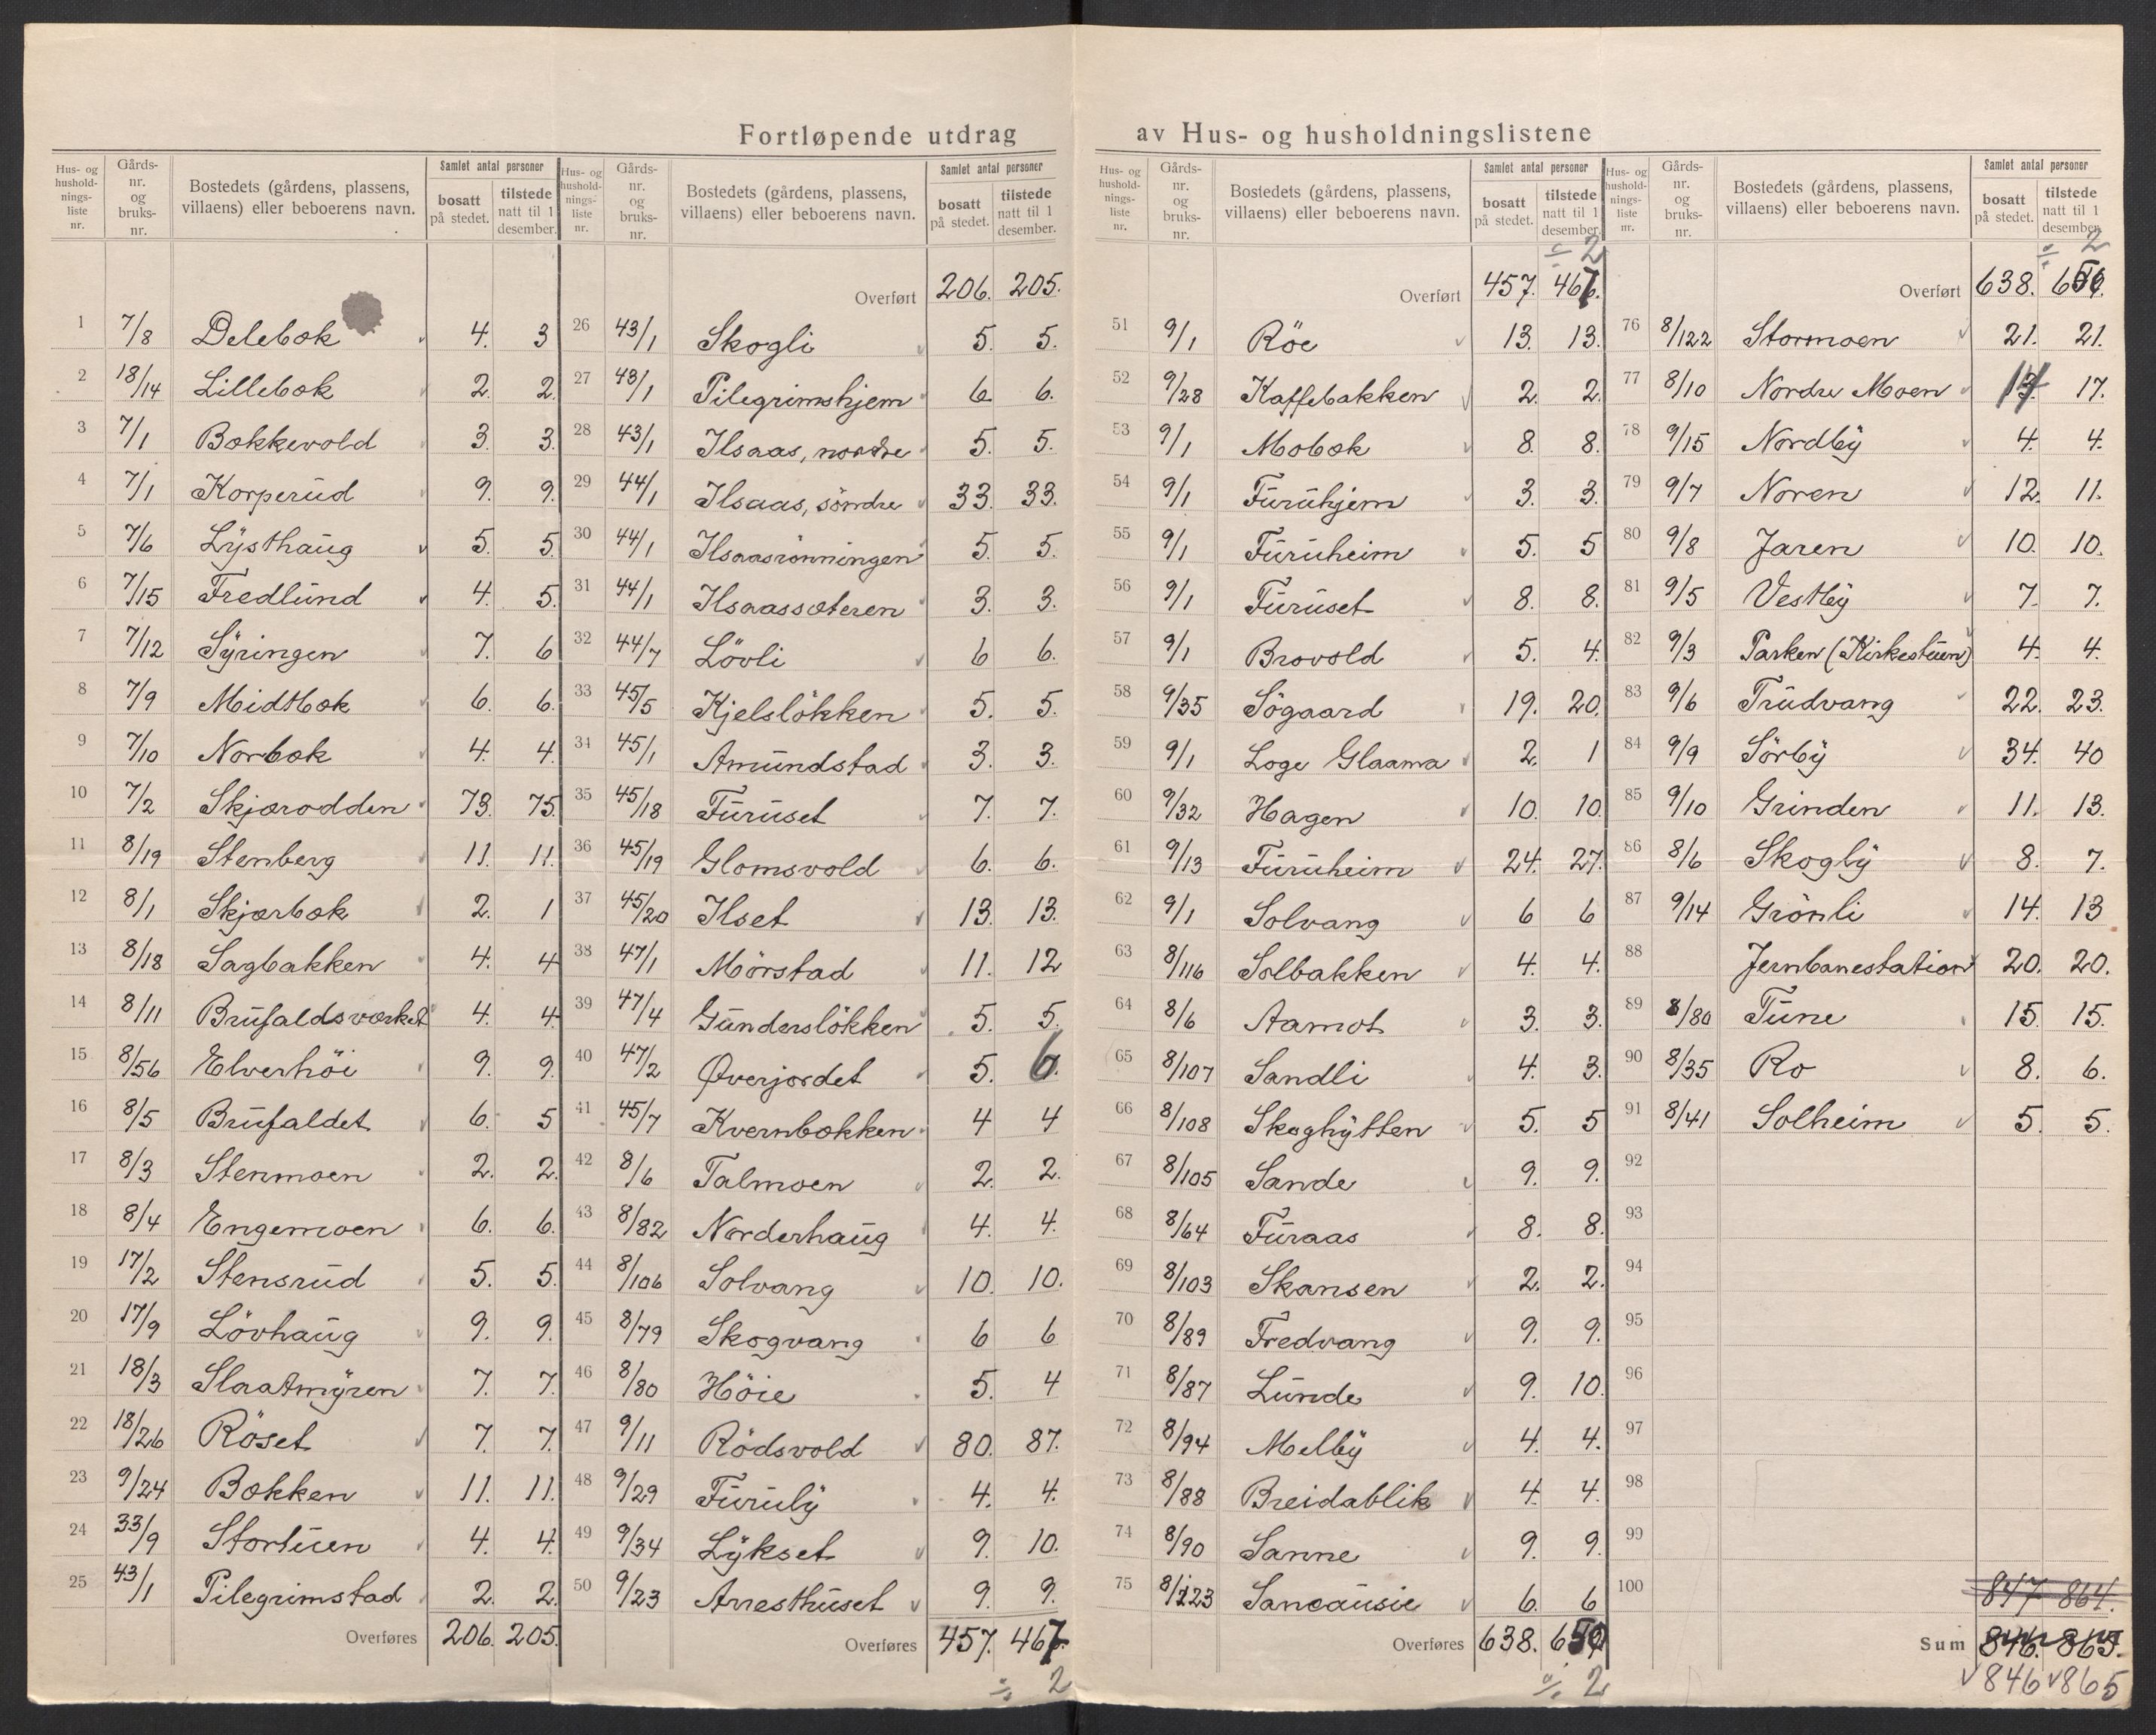 Fortløpende utdrag av Hus- og husholdningslistene
Hus- og husholdnings-liste nr. | Gårds-nr. og bruks-nr. | Bostedets (gårdens, plassens, villaens) eller beboerens navn. | Samlet antal personer | bosatt på stedet. | tilstede natt til 1 desember.
1 7/8 Delebæk 4. 3
2 18/14 Lillebæk 2. 2.
3 7/1 Bækkevold 3. 3.
4 7/1 Korperud 9. 9.
5 7/6 Lysthaug 5. 5.
6 7/15 Fredlund 4. 5.
7 7/12 Syringen 7. 6
8 7/9 Midtbæk 6. 6.
9 7/10 Norbæk 4. 4.
10 7/2 Skjærodden 73. 75.
11 8/19 Stenberg 11. 11.
12 8/1 Skjærbæk 2. 1
13 8/18 Sagbakken 4. 4
14 8/11 Brufaldsværket 4. 4.
15 8/56 Elverhöi 9. 9.
16 8/5 Brufaldet 6. 5
17 8/3 Stenmoen 2. 2.
18 8/4 Engemoen 6. 6.
19 17/2 Stensrud 5. 5.
20 17/9 Lövhaug 9. 9.
21 18/3 Slaatmyren 7. 7.
22 18/26 Röset 7. 7.
23 9/24 Bækken 11. 11.
24 33/9 Stortuen 4. 4.
25 43/1 Pilegrimstad 2. 2.
Overføres 206. 205.
Hus- og husholdnings-liste nr. | Gårds-nr. og bruks-nr. | Bostedets (gårdens, plassens, villaens) eller beboerens navn. | Samlet antal personer | bosatt på stedet. | tilstede natt til 1 desember.
Overført 206. 205.
26 43/1 Skogli 5. 5.
27 43/1 Pilegrimshjem 6 6.
28 43/1 Ilsaas, nordre 5. 5.
29 44/1 Ilsaas, söndre 33. 33.
30 44/1 Ilsaasrönningen 5. 5.
31 44/1 Ilsaassæteren 3. 3.
32 44/7 Lövli 6 6.
33 45/5 Kjelslökken 5. 5.
34 45/1 Amundstad 3. 3.
35 45/18 Furuset 7. 7.
36 45/19 Glomsvold 6. 6.
37 45/20 Ilset 13. 13.
38 47/1 Mörstad 11. 12
39 47/4 Gunderslökken 5. 5.
40 47/2 Øverjordet 5. 6.
41 45/7 Kvernbækken 4 4
42 8/6 Talmoen 2. 2.
43 8/82 Norderhaug 4. 4.
44 8/106 Solvang 10. 10.
45 8/79 Skogvang 6 6
46 8/80 Höie 5. 4
47 9/11 Rödsvold 80. 87.
48 9/29 Furuly 4. 4.
49 9/34 Lykset 9. 10.
50 9/23 Arresthuset 9. 9.
Overføres 457. 467.
÷ 2
Hus- og husholdnings-liste nr. | Gårds-nr. og bruks-nr. | Bostedets (gårdens, plassens, villaens) eller beboerens navn. | Samlet antal personer | bosatt på stedet. | tilstede natt til 1 desember.
÷ 2
Overført 457. 467.
51 9/1 Röe 13. 13.
52 9/28 Kaffebakken 2. 2.
53 9/1 Mobæk 8. 8.
54 9/1 Furuhjem 3. 3.
55 9/1 Furuheim 5. 5
56 9/1 Furuset 8. 8.
57 9/1 Brovold 5. 4.
58 9/35 Sögaard 19. 20.
59 9/1 Loge Glaama 2. 1
60 9/32 Hagen 10. 10.
61 9/13 Furuheim 24. 27.
62 9/1 Solvang 6 6
63 8/116 Solbakken 4. 4.
64 8/6 Aamot 3. 3.
65 8/107 Sandli 4. 3.
66 8/108 Skoghytten 5. 5
67 8/105 Sande 9. 9.
68 8/64 Furaas 8. 8.
69 8/103 Skansen 2. 2.
70 8/89 Fredvang 9. 9.
71 8/87 Lunde 9. 10.
72 8/94 Melby 4. 4.
73 8/88 Breidablik 4. 4.
74 8/90 Sanne 9. 9.
75 8/123 Sancausie 6. 6
Overføres 638.
÷ 2
Hus- og husholdnings-liste nr. | Gårds-nr. og bruks-nr. | Bostedets (gårdens, plassens, villaens) eller beboerens navn. | Samlet antal personer | bosatt på stedet. | tilstede natt til 1 desember.
÷ 2
Overført 638.
76 8/122 Stormoen 21. 21.
77 8/10 Nordre Moen 17.
78 9/15 Nordby 4. 4.
79 9/7 Noren 12. 11.
80 9/8 Jaren 10. 10.
81 9/5 Vestby 7. 7.
82 9/3 Parken (Kirkestuen) 4. 4.
83 9/6 Trudvang 22. 23.
84 9/9 Sörby 34. 40
85 9/10 Grinden 11. 13.
86 8/6 Skogly 8. 7.
87 9/14 Grönli 14. 13
88 Jernbanestation 20. 20.
89 8/80 Tune 15. 15.
90 8/35 Ro 8. 6.
91 8/41 Solheim 5. 5.
92
93
94
95
96
97
98
99
100 847 864.
Sum 846. 865.
846 865